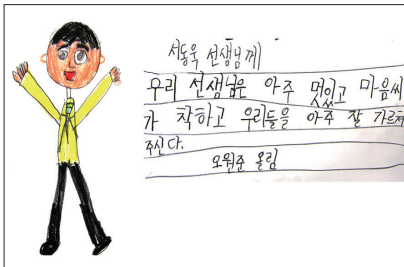 서동욱 선생님께
우리 선생님은 아주 멋있고 마음씨
가 착하고 우리들을 아주 잘 가르쳐
주신다.
오원준 올림